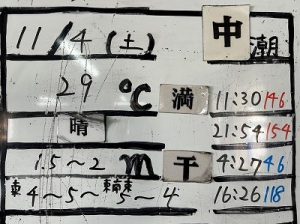 11/4(土) 中潮
29℃ 満 11:30 146
晴 21:54 154
1.5~2m 干 4:27 46
東4~5~東南東5~4 16:26 118